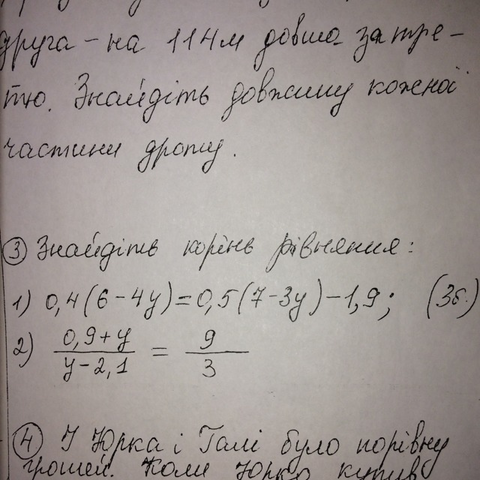 друга – на 114м довша за тре-
тю. Знайдіть довжину кожної
частини дроту.
③ Знайдіть корінь рівняння:
1) 0,4(6-4y)=0,5(7-3y)-1,9; (3б.)
2) (0,9+y)/(y-2,1) = 9/3
④ У Юрка і Галі було порівну
грошей. Коли Юрко купив